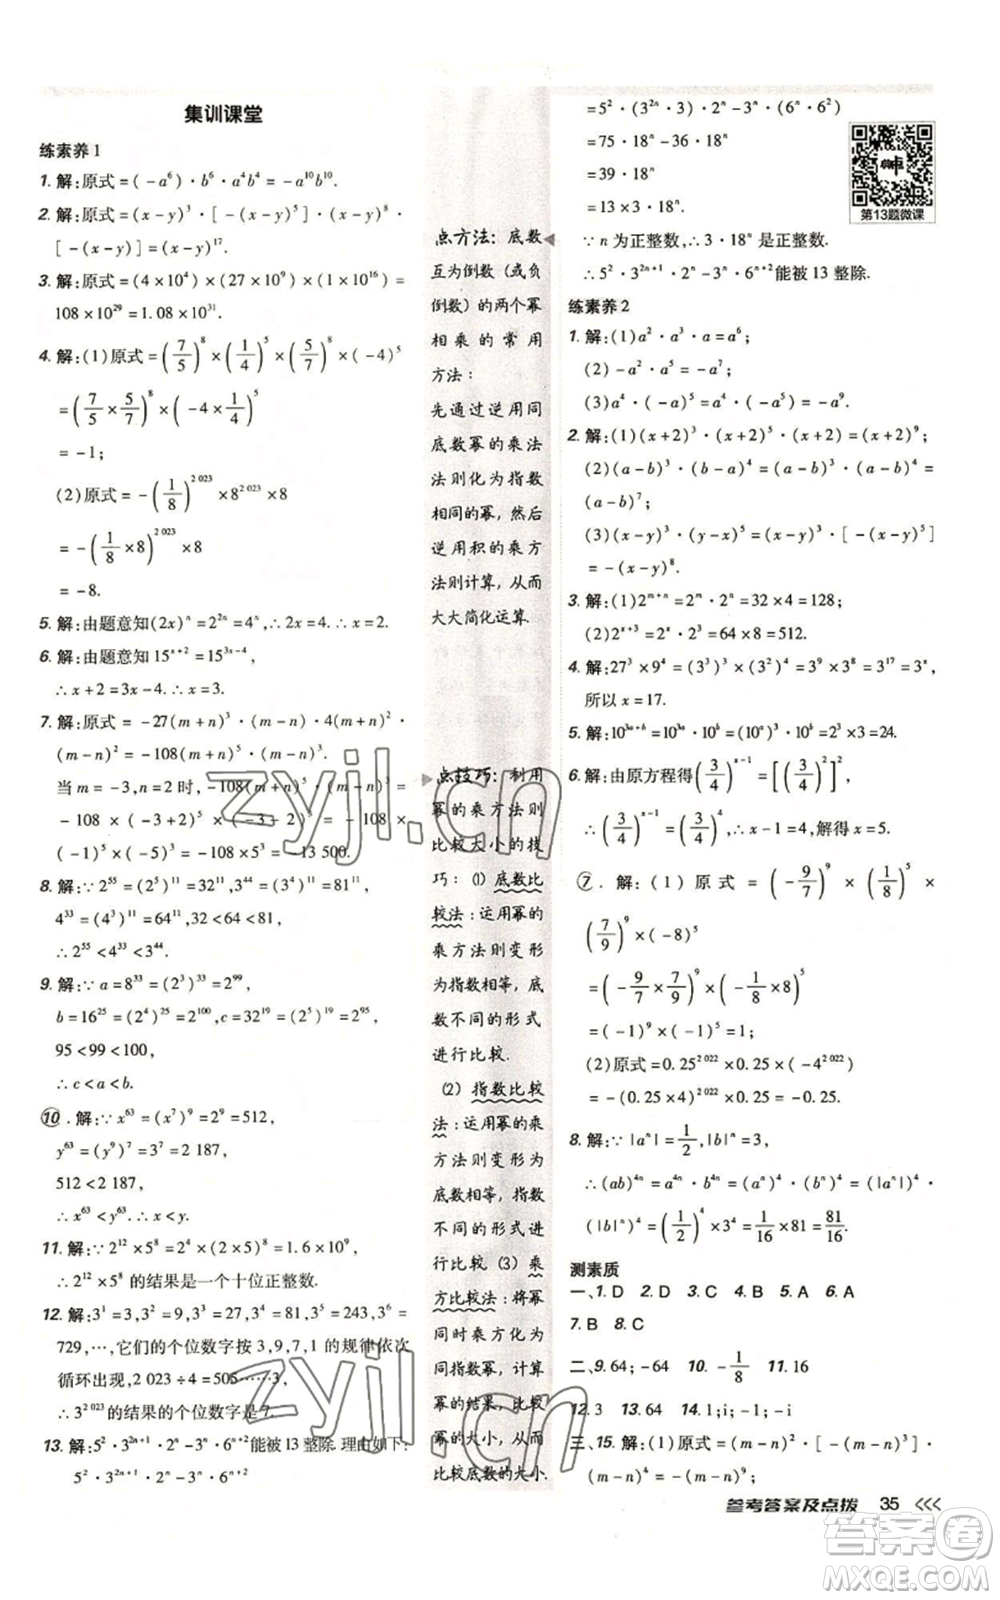 集训课堂
练素养1
1. 解:原式=(-a⁶)·b⁶·a⁴b⁴=-a¹⁰b¹⁰.
2. 解:原式=(x-y)³·[-(x-y)⁵]·(x-y)⁴·
[-(x-y)⁵]=(x-y)¹⁷.
3. 解:原式=(4×10⁴)×(27×10⁹)×(1×10¹⁶)=
108×10²⁹=1.08×10³¹.
4. 解:(1)原式=(7/5)⁸×(1/4)⁵×(5/7)⁸×(-4)⁵
=(7/5×5/7)⁸×(-4×1/4)⁵
=-1;
(2)原式=-(1/8)^2 023×8^2 023×8
=-(1/8×8)^2 023×8
=-8.
5. 解:由题意知(2x)ⁿ=2²ⁿ=4ⁿ,∴2x=4.∴x=2.
6. 解:由题意知15ˣ⁺²=15³ˣ⁻⁴,
∴x+2=3x-4.∴x=3.
7. 解:原式=-27(m+n)³·(m-n)·4(m+n)²·
(m-n)²=-108(m+n)⁵·(m-n)³.
当m=-3,n=2时,-108(m+n)⁵·(m-n)³=
-108×(-3+2)⁵×(-3-2)³=-108×
(-1)×(-5)³=-13 500.
8. 解:∵2⁵⁵=(2⁵)¹¹=32¹¹,3⁴⁴=(3⁴)¹¹=81¹¹,
4³³=(4³)¹¹=64¹¹,32<64<81,
∴2⁵⁵<4³³<3⁴⁴.
9. 解:∵a=8³³=(2³)³³=2⁹⁹,
b=16²⁵=(2⁴)²⁵=2¹⁰⁰,c=32¹⁹=(2⁵)¹⁹=2⁹⁵,
95<99<100,
∴c<a<b.
10. 解:∵x⁶³=(x⁷)⁹=2⁹=512,
y⁶³=(y⁹)⁷=3⁷=2 187,
512<2 187,
∴x⁶³<y⁶³.∴x<y.
11. 解:∵2¹²×5⁸=2⁴×(2×5)⁸=1.6×10⁹,
∴2¹²×5⁸的结果是一个十位正整数.
12. 解:3¹=3,3²=9,3³=27,3⁴=81,3⁵=243,3⁶=
729,…,它们的个位数字按3,9,7,1的规律依次
循环出现,2 023÷4=505……3,
∴3^2 023的结果的个位数字是7.
13. 解:5²·3²ⁿ⁺¹·2ⁿ-3ⁿ·6ⁿ⁺²能被13整除.理由如下:
5²·3²ⁿ⁺¹·2ⁿ-3ⁿ·6ⁿ⁺²
点方法:底数
互为倒数(或负
倒数)的两个幂
相乘的常用
方法:
先通过逆用同
底数幂的乘法
法则化为指数
相同的幂,然后
逆用积的乘方
法则计算,从而
大大简化运算.
点技巧:利用
幂的乘方法则
比较大小的技
巧:(1)底数比
较法:运用幂的
乘方法则变形
为指数相等,底
数不同的形式
进行比较.
(2)指数比较
法:运用幂的乘
方法则变形为
底数相等,指数
不同的形式进
行比较.(3)乘
方比较法:将幂
同时乘方化为
同指数幂,计算
幂的结果,比较
幂的大小,从而
比较底数的大小.
=5²·(3²ⁿ·3)·2ⁿ-3ⁿ·(6ⁿ·6²)
=75·18ⁿ-36·18ⁿ
=39·18ⁿ
=13×3·18ⁿ.
第13题微课
∵n为正整数,∴3·18ⁿ是正整数.
∴5²·3²ⁿ⁺¹·2ⁿ-3ⁿ·6ⁿ⁺²能被13整除.
练素养2
1. 解:(1)a²·a³·a=a⁶;
(2)-a²·a⁵=-a⁷;
(3)a⁴·(-a)⁵=-a⁹.
2. 解:(1)(x+2)³·(x+2)⁵·(x+2)=(x+2)⁹;
(2)(a-b)³·(b-a)⁴=(a-b)³·(a-b)⁴=
(a-b)⁷;
(3)(x-y)³·(y-x)⁵=(x-y)³·[-(x-y)⁵]
=-(x-y)⁸.
3. 解:(1)2ᵐ⁺ⁿ=2ᵐ·2ⁿ=32×4=128;
(2)2ˣ⁺³=2ˣ·2³=64×8=512.
4. 解:27³×9⁴=(3³)³×(3²)⁴=3⁹×3⁸=3¹⁷=3ˣ,
所以x=17.
5. 解:10³ᵃ⁺ᵇ=10³ᵃ·10ᵇ=(10ᵃ)³·10ᵇ=2³×3=24.
6. 解:由原方程得(3/4)ˣ⁻¹=[(3/4)²]²,
∴(3/4)ˣ⁻¹=(3/4)⁴,∴x-1=4,解得x=5.
7. 解:(1)原式=(-9/7)⁹×(1/8)⁵×
(7/9)⁹×(-8)⁵
=(-9/7×7/9)⁹×(-1/8×8)⁵
=(-1)⁹×(-1)⁵=1;
(2)原式=0.25^2 022×0.25×(-4^2 022)
=-(0.25×4)^2 022×0.25=-0.25.
8. 解:∵|aⁿ|=1/2,|b|ⁿ=3,
∴(ab)⁴ⁿ=a⁴ⁿ·b⁴ⁿ=(aⁿ)⁴·(bⁿ)⁴=(|aⁿ|)⁴·
(|b|ⁿ)⁴=(1/2)⁴×3⁴=1/16×81=81/16.
测素质
一、1. D 2. D 3. C 4. B 5. A 6. A
7. B 8. C
二、9. 64;-64 10. -1/8 11. 16
12. 3 13. 64 14. 1;i;-1;-i
三、15. 解:(1)原式=(m-n)²·[-(m-n)³]·
(m-n)⁴=-(m-n)⁹;
参考答案及点拨 35
zyjl.cn
zyjl.cn
答案圈
MXQE.COM